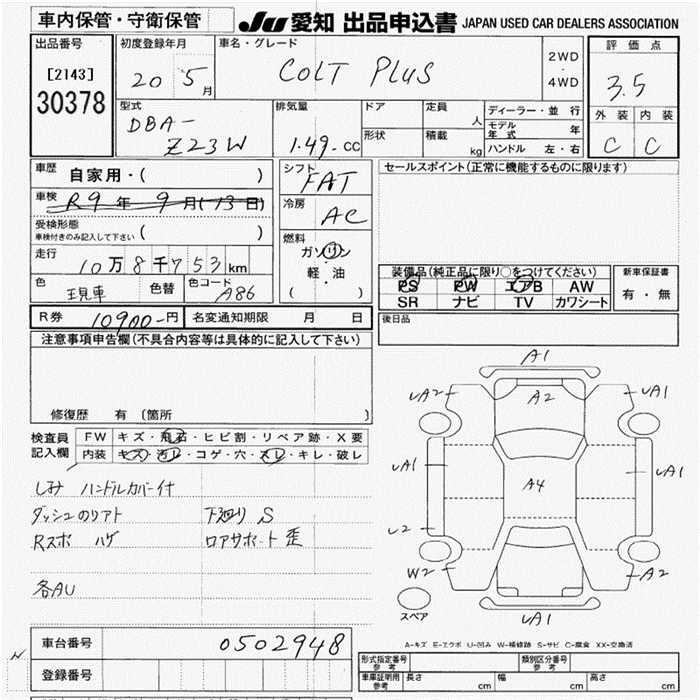 車内保管・守衛保管
JU 愛知 出品申込書 JAPAN USED CAR DEALERS ASSOCIATION
出品番号
[2143]
30378
初度登録年月
20 5月
車名・グレード
COLT PLUS
2WD
・
4WD
評価点
3.5
外装 内装
C C
型式
DBA-
Z23W
排気量
1.49-cc
ドア
形状
定員 人
積載 kg
ディーラー・並行
モデル年式 年
ハンドル 左・右
車歴 自家用・( )
車検 R9年9月(13日)
受検形態
車検付きのみ記入して下さい ( )
走行
10万8千753km
色 現車 色替 色コード A86
シフト
FAT
冷房
AC
燃料
ガソリン
軽・油
( )
セールスポイント(正常に機能するものに限ります)
装備品(純正品に限り○をつけてください)
PS PW エアB AW
SR ナビ TV カワシート
新車保証書
有・無
R券 10900-円 名変通知期限 月 日
後日品
注意事項申告欄(不具合内容等は具体的に記入して下さい)
修復歴 有 (箇所 )
検査員記入欄
FW キズ・飛石・ヒビ割・リペア跡・X要
内装 キズ・汚レ・コゲ・穴・スレ・キレ・破レ
しみ ハンドルカバー付
ダッシュのりアト 下廻り S
Rスポ ハゲ ロアサポート歪
各AU
A1
UA2 A2 UA1
UA1 A4 UA1
U2
W2 A2
スペア
UA1
A-キズ E-エクボ U-凹み W-補修跡 S-サビ C-腐食 XX-交換済
車台番号 0502948
登録番号
形式指定番号
参考
類別区分番号
参考
車庫証明用
参考
長さ cm 幅 cm 高さ cm